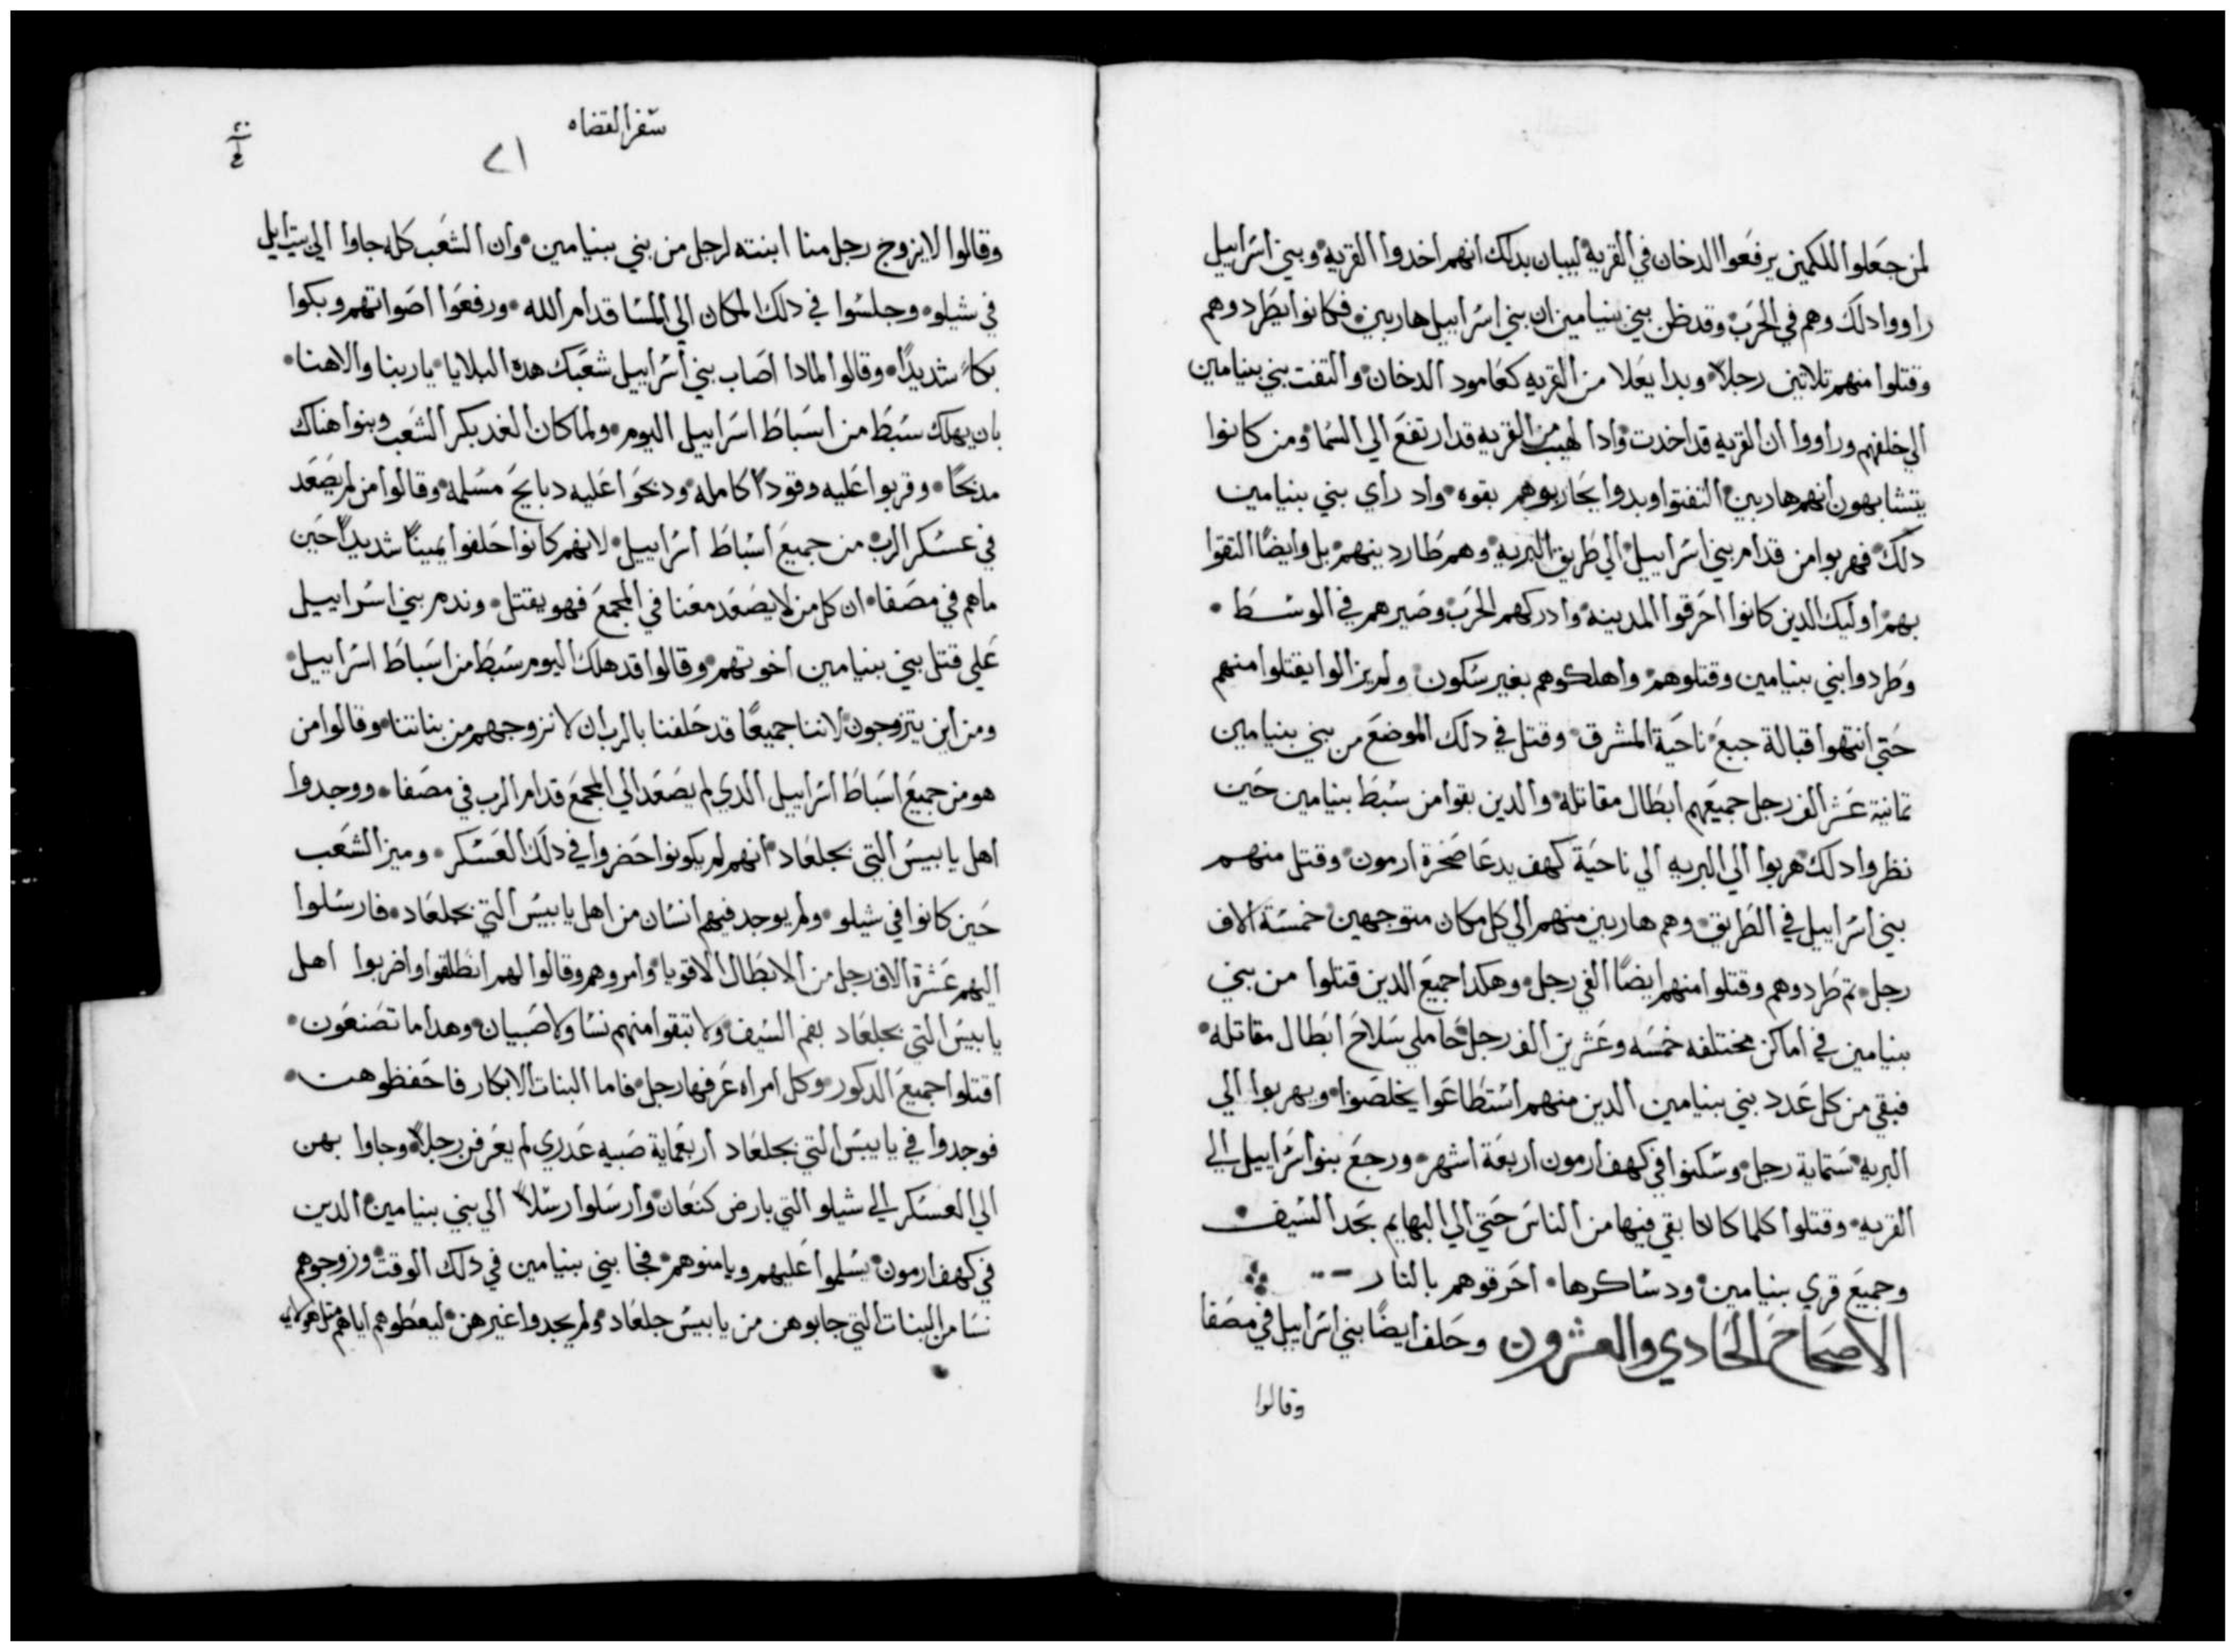 لمن جعلوا للكمين يرفعوا الدخان في القريه لبيان بدلك انهم اخدوا القريه وبني اسراييل
راووا دلك وهم في الحرب وقد ظن بني بنيامين ان بني اسراييل هاربين فكانوا يطردوهم
وقتلوا منهم تلاتين رجلاً وبدا يعلا من القريه كعامود الدخان والتفت بني بنيامين
الي خلفهم وراووا ان القريه قد اخدت وادا لهيب من القريه قد ارتفع الي السما ومن كانوا
يتشابهون انهم هاربين التفتوا وبدوا يحاربوهم بقوه واد راي بني بنيامين
دلك فهربوا من قدام بني اسراييل الي طريق البريه وهم طاردينهم بل وايضًا التقوا
بهم اوليك الدين كانوا احرقوا المدينه وادركهم الحرب وصيرهم في الوسط
وطردوا بني بنيامين وقتلوهم واهلكوهم بغير سكون ولم يزالوا يقتلوا منهم
حتي انتهوا قبالة جبع ناحية المشرق وقتل في دلك الموضع من بني بنيامين
تمانية عشر الف رجل جميعهم ابطال مقاتله والدين بقوا من سبط بنيامين حين
نظروا دلك هربوا الي البريه الي ناحية كهف يدعا صخرة ارمون وقتل منهم
بني اسراييل في الطريق وهم هاربين منهم الي كل مكان متوجهين خمسة الاف
رجل تم طردوهم وقتلوا منهم ايضًا الفي رجل وهكدا جميع الدين قتلوا من بني
بنيامين في اماكن مختلفه خمسه وعشرين الف رجل حاملي سلاح ابطال مقاتله
فبقي من كل عدد بني بنيامين الدين منهم استطاعوا يخلصوا ويهربوا الي
البريه ستماية رجل وسكنوا في كهف ارمون اربعة اشهر ورجع بنوا اسراييل الي
القريه وقتلوا كلما كان بقي فيها من الناس حتي الي البهايم بحد السيف
وجميع قري بنيامين ودساكرها احرقوهم بالنار
الاصحاح الحادي والعشرون وحلف ايضًا بني اسراييل في مصفا
وقالوا
سفر القضاه
٢١
وقالوا لا يزوج رجل منا ابنته لرجل من بني بنيامين وان الشعب كله جاوا الي بيت ايل
في شيلو وجلسوا في دلك المكان الي المسا قدام الله ورفعوا اصواتهم وبكوا
بكاً شديدًا وقالوا لمادا اصاب بني اسراييل شعبك هده البلايا يا ربنا والاهنا
بان يهلك سبط من اسباط اسراييل اليوم ولما كان الغد بكر الشعب وبنوا هناك
مدبحًا وقربوا عليه وقودًا كامله ودبحوا عليه دبايح مسلمه وقالوا من لم يصعد
في عسكر الرب من جميع اسباط اسراييل لانهم كانوا حلفوا يمينًا شديدًا حين
ما هم في مصفا ان كل من لا يصعد معنا في المجمع فهو يقتل وندم بني اسراييل
علي قتل بني بنيامين اخوتهم وقالوا قد هلك اليوم سبط من اسباط اسراييل
ومن اين يتزوجون لاننا جميعًا قد حلفنا بالرب ان لا نزوجهم من بناتنا وقالوا من
هو من جميع اسباط اسراييل الدي لم يصعد الي المجمع قدام الرب في مصفا ووجدوا
اهل يابيس التي بجلعاد انهم لم يكونوا حضروا في دلك العسكر وميز الشعب
حين كانوا في شيلو ولم يوجد فيهم انسان من اهل يابيس التي بجلعاد فارسلوا
اليهم عشرة الاف رجل من الابطال الاقويا وامروهم وقالوا لهم انطلقوا واضربوا اهل
يابيس التي بجلعاد بفم السيف ولا تبقوا منهم نسا ولا صبيان وهدا ما تصنعون
اقتلوا جميع الدكور وكل امراه عرفها رجل فاما البنات الابكار فاحفظوهن
فوجدوا في يابيس التي بجلعاد اربعماية صبيه عدري لم يعرفن رجلاً وجاوا بهن
الي العسكر الي شيلو التي بارض كنعان وارسلوا رسلاً الي بني بنيامين الدين
في كهف ارمون يسلموا عليهم ويامنوهم فجا بني بنيامين في دلك الوقت وزوجوهم
نسا من البنات التي جابوهن من يابيس جلعاد ولم يجدوا غيرهن ليعطوهم اياهم متل هولاي